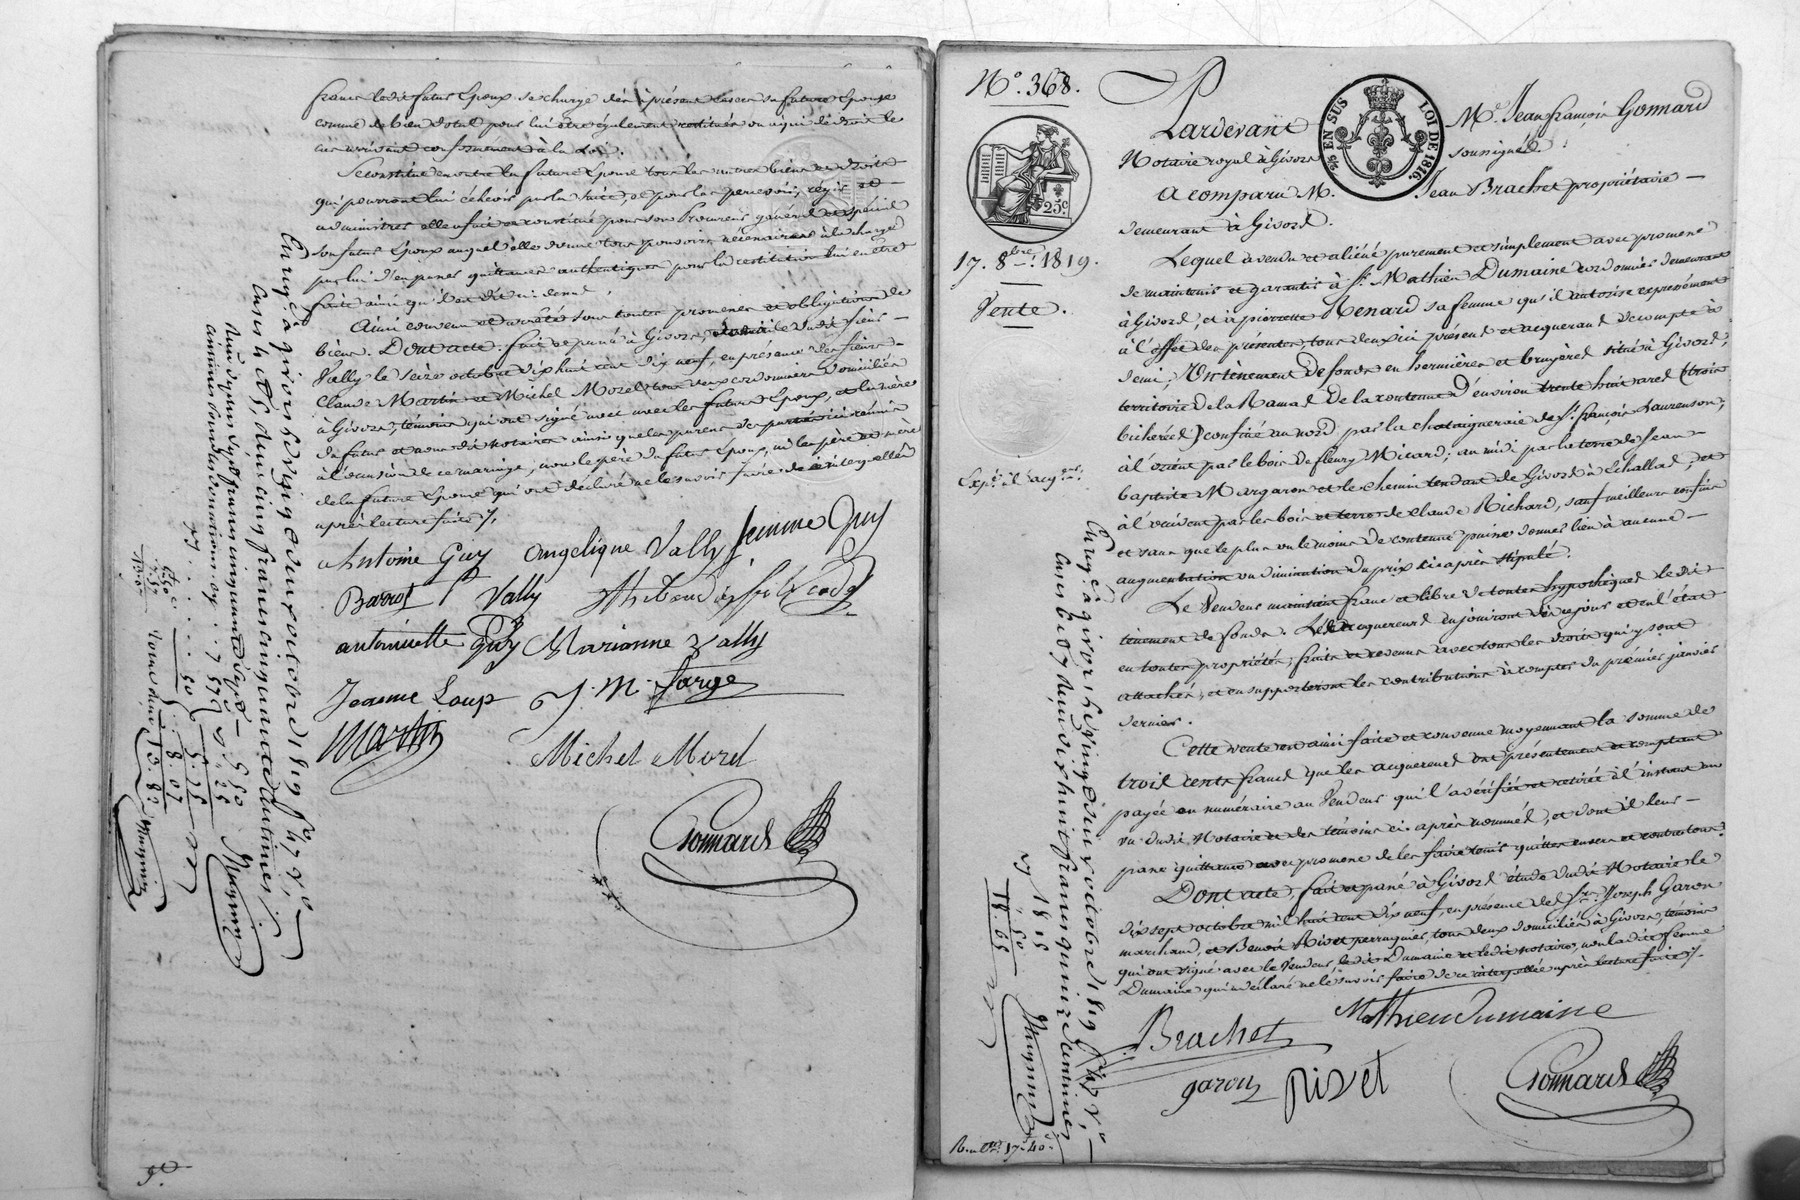 francs ledit futur Epoux se charge dès à présent envers sa future Epouse
comme de bien dotal pour lui être également restitués ou à qui de droit le
cas arrivant conformément à la Loi.
Se constitue en outre la future Epouse tous les autres biens et droits
qui pourront lui échéoir par la suite, et pour les percevoir, régir et
administrer elle a fait et constitué pour son Procureur général et spécial
son futur Epoux auquel elle donne tous pouvoirs nécessaires à la charge
par lui d'en passer quittances authentiques pour la restitution lui en être
faite ainsi qu'il est dit ci-dessus.
Ainsi convenu et arrêté sous toutes promesses et obligations de
biens. Dont acte. fait et passé à Givors, du dit sieur
Vally le seize octobre dix huit cent dix neuf, en présence des sieurs
Claude Martin et Michel Morel tous deux cordonniers domiciliés
à Givors, témoins qui ont signé avec les futurs Epoux, et la mère
du futur et nous dit notaire ainsi que les parens des parties ici réunis
à l'occasion de ce mariage, non le père du futur Epoux, ni les père et mère
de la future Epouse qui ont déclaré ne le savoir faire de ce interpellés
après lecture faite /.
Antoine Guy Angelique Vally Jeanne Guy
Barrot Vally Thibaudier
antoinette Guy Marianne Vally
Jeanne Loup J. M. Farge
Martin
Michel Morel
Gonnard
Enregé à givors le vingt deux octobre 1819 fo 47
cases 4 et 5, du cinq francs cinquante centimes
5. 50
8. 07
13. 82
No. 368.
17. 8bre 1819.
Vente.
25c
25 EN SUS LOI DE 1816.
Expn. à l'acqr.
Pardevant Me. Jean françois Gonnard
Notaire royal à Givors soussigné.
A comparu M. Jean Brachet propriétaire
demeurant à Givors.
Lequel a vendu et aliéné purement et simplement avec promesse
de maintenir et garantir à Sr. Mathieu Dumaine cordonnier demeurant
à Givors, et à pierrette Renard sa femme qu'il autorise expressément
à l'effet des présentes, tous deux ici présens et acquérans de compte à
demi, Un tènement de fonds en hermières et bruyères situé à Givors,
territoire de la Ramas de la contenue d'environ trente huit ares (trois
bicherées) confiné au nord par la chataigneraie de Sr. françois Laurenson,
à l'orient par le bois de fleury Micard; au midi par la terre de Jean
baptiste Margaron et le chemin tendant de Givors à Echallas, et
à l'occident par les bois et terres de Claude Richard, sauf meilleurs confins
et sans que le plus ou le moins de contenue puisse donner lieu à aucune
augmentation ou diminution du prix ci-après stipulé.
Le Vendeur maintient franc et libre de toutes hypothèques le dit
tènement de fonds. Les acquereurs en jouiront dès ce jour et en l'état
en toutes propriétés, fruits et revenus avec tous les droits qui y sont
attachés, et en supporteront les contributions à compter du premier janvier
dernier.
Cette vente est ainsi faite et convenue moyennant la somme de
trois cents francs que les acquereurs ont présentement et comptant
payée en numéraire au Vendeur qui l'a vérifiée et retirée à l'instant au
vu dudit Notaire et des témoins ci-après nommés, et dont il leur
passe quittance avec promesse de les faire tenir quittes envers et contre tous.
Dont acte, fait et passé à Givors étude dudit Notaire le
dix sept octobre mil huit cent dix neuf, en présence de Srs. Joseph Garon
marchand, et Benoit Rivet perruquier, tous deux domiciliés à Givors, témoins
qui ont signé avec le Vendeur ledit Dumaine et ledit notaire, non ladite femme
Dumaine qui a déclaré ne le savoir faire de ce interpellée après lecture faite /.
Brachet Mathieu Dumaine
garon Rivet Gonnard
Enregé à givors, le vingt deux octobre 1819 fo 47
cases 6 et 7 du dix huit francs quinze centimes
18 15
. 50
18. 65